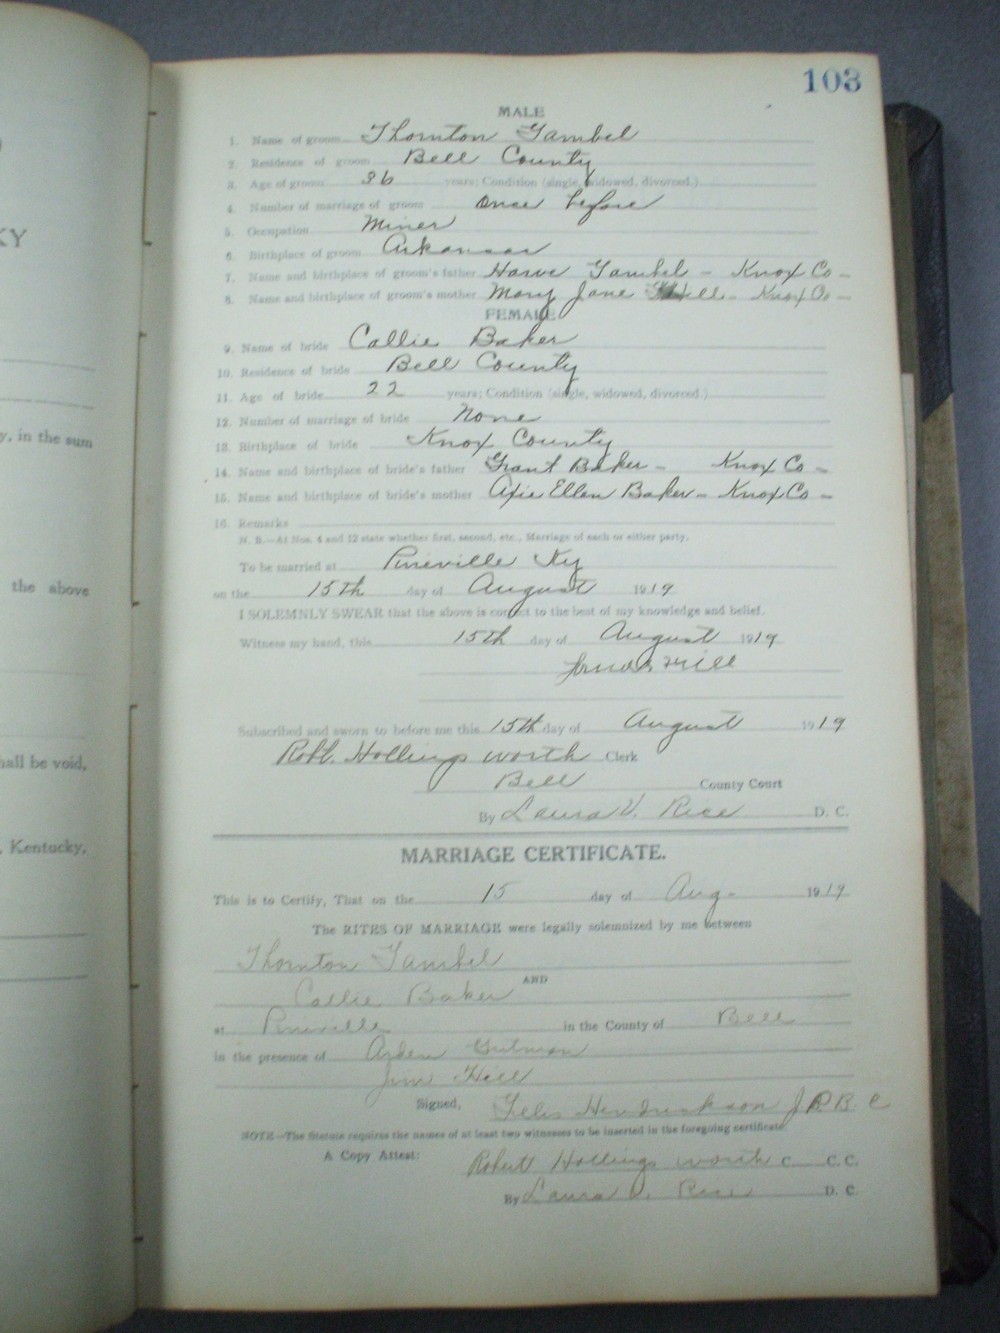 103
MALE
1. Name of groom Thornton Gambel
2. Residence of groom Bell County
3. Age of groom 36 years; Condition (single, widowed, divorced.)
4. Number of marriage of groom Once before
5. Occupation Miner
6. Birthplace of groom Arkansas
7. Name and birthplace of groom's father Harve Gambel - Knox Co -
8. Name and birthplace of groom's mother Mary Jane Hill - Knox Co -
FEMALE
9. Name of bride Callie Baker
10. Residence of bride Bell County
11. Age of bride 22 years; Condition (single, widowed, divorced.)
12. Number of marriage of bride None
13. Birthplace of bride Knox County
14. Name and birthplace of bride's father Grant Baker - Knox Co -
15. Name and birthplace of bride's mother Axie Ellen Baker - Knox Co -
16. Remarks
N. B.—At Nos. 4 and 12 state whether first, second, etc., Marriage of each or either party.
To be married at Pineville Ky
on the 15th day of August 1919
I SOLEMNLY SWEAR that the above is correct to the best of my knowledge and belief.
Witness my hand, this 15th day of August 1919
Subscribed and sworn to before me this 15th day of August 1919
Robt. Hollingsworth Clerk
Bell County Court
By Laura V. Rice D. C.
MARRIAGE CERTIFICATE.
This is to Certify, That on the 15 day of Aug - 1919
The RITES OF MARRIAGE were legally solemnized by me between
Thornton Gambel
AND
Callie Baker
at Pineville in the County of Bell
in the presence of Arden
Jim Hill
Signed, Felix Hendrickson J.P.B.C
NOTE—The Statute requires the names of at least two witnesses to be inserted in the foregoing certificate.
A Copy Attest: Robert Hollingsworth C. C. C.
By Laura V. Rice D. C.
KY
y, in the sum
the above
hall be void,
, Kentucky,